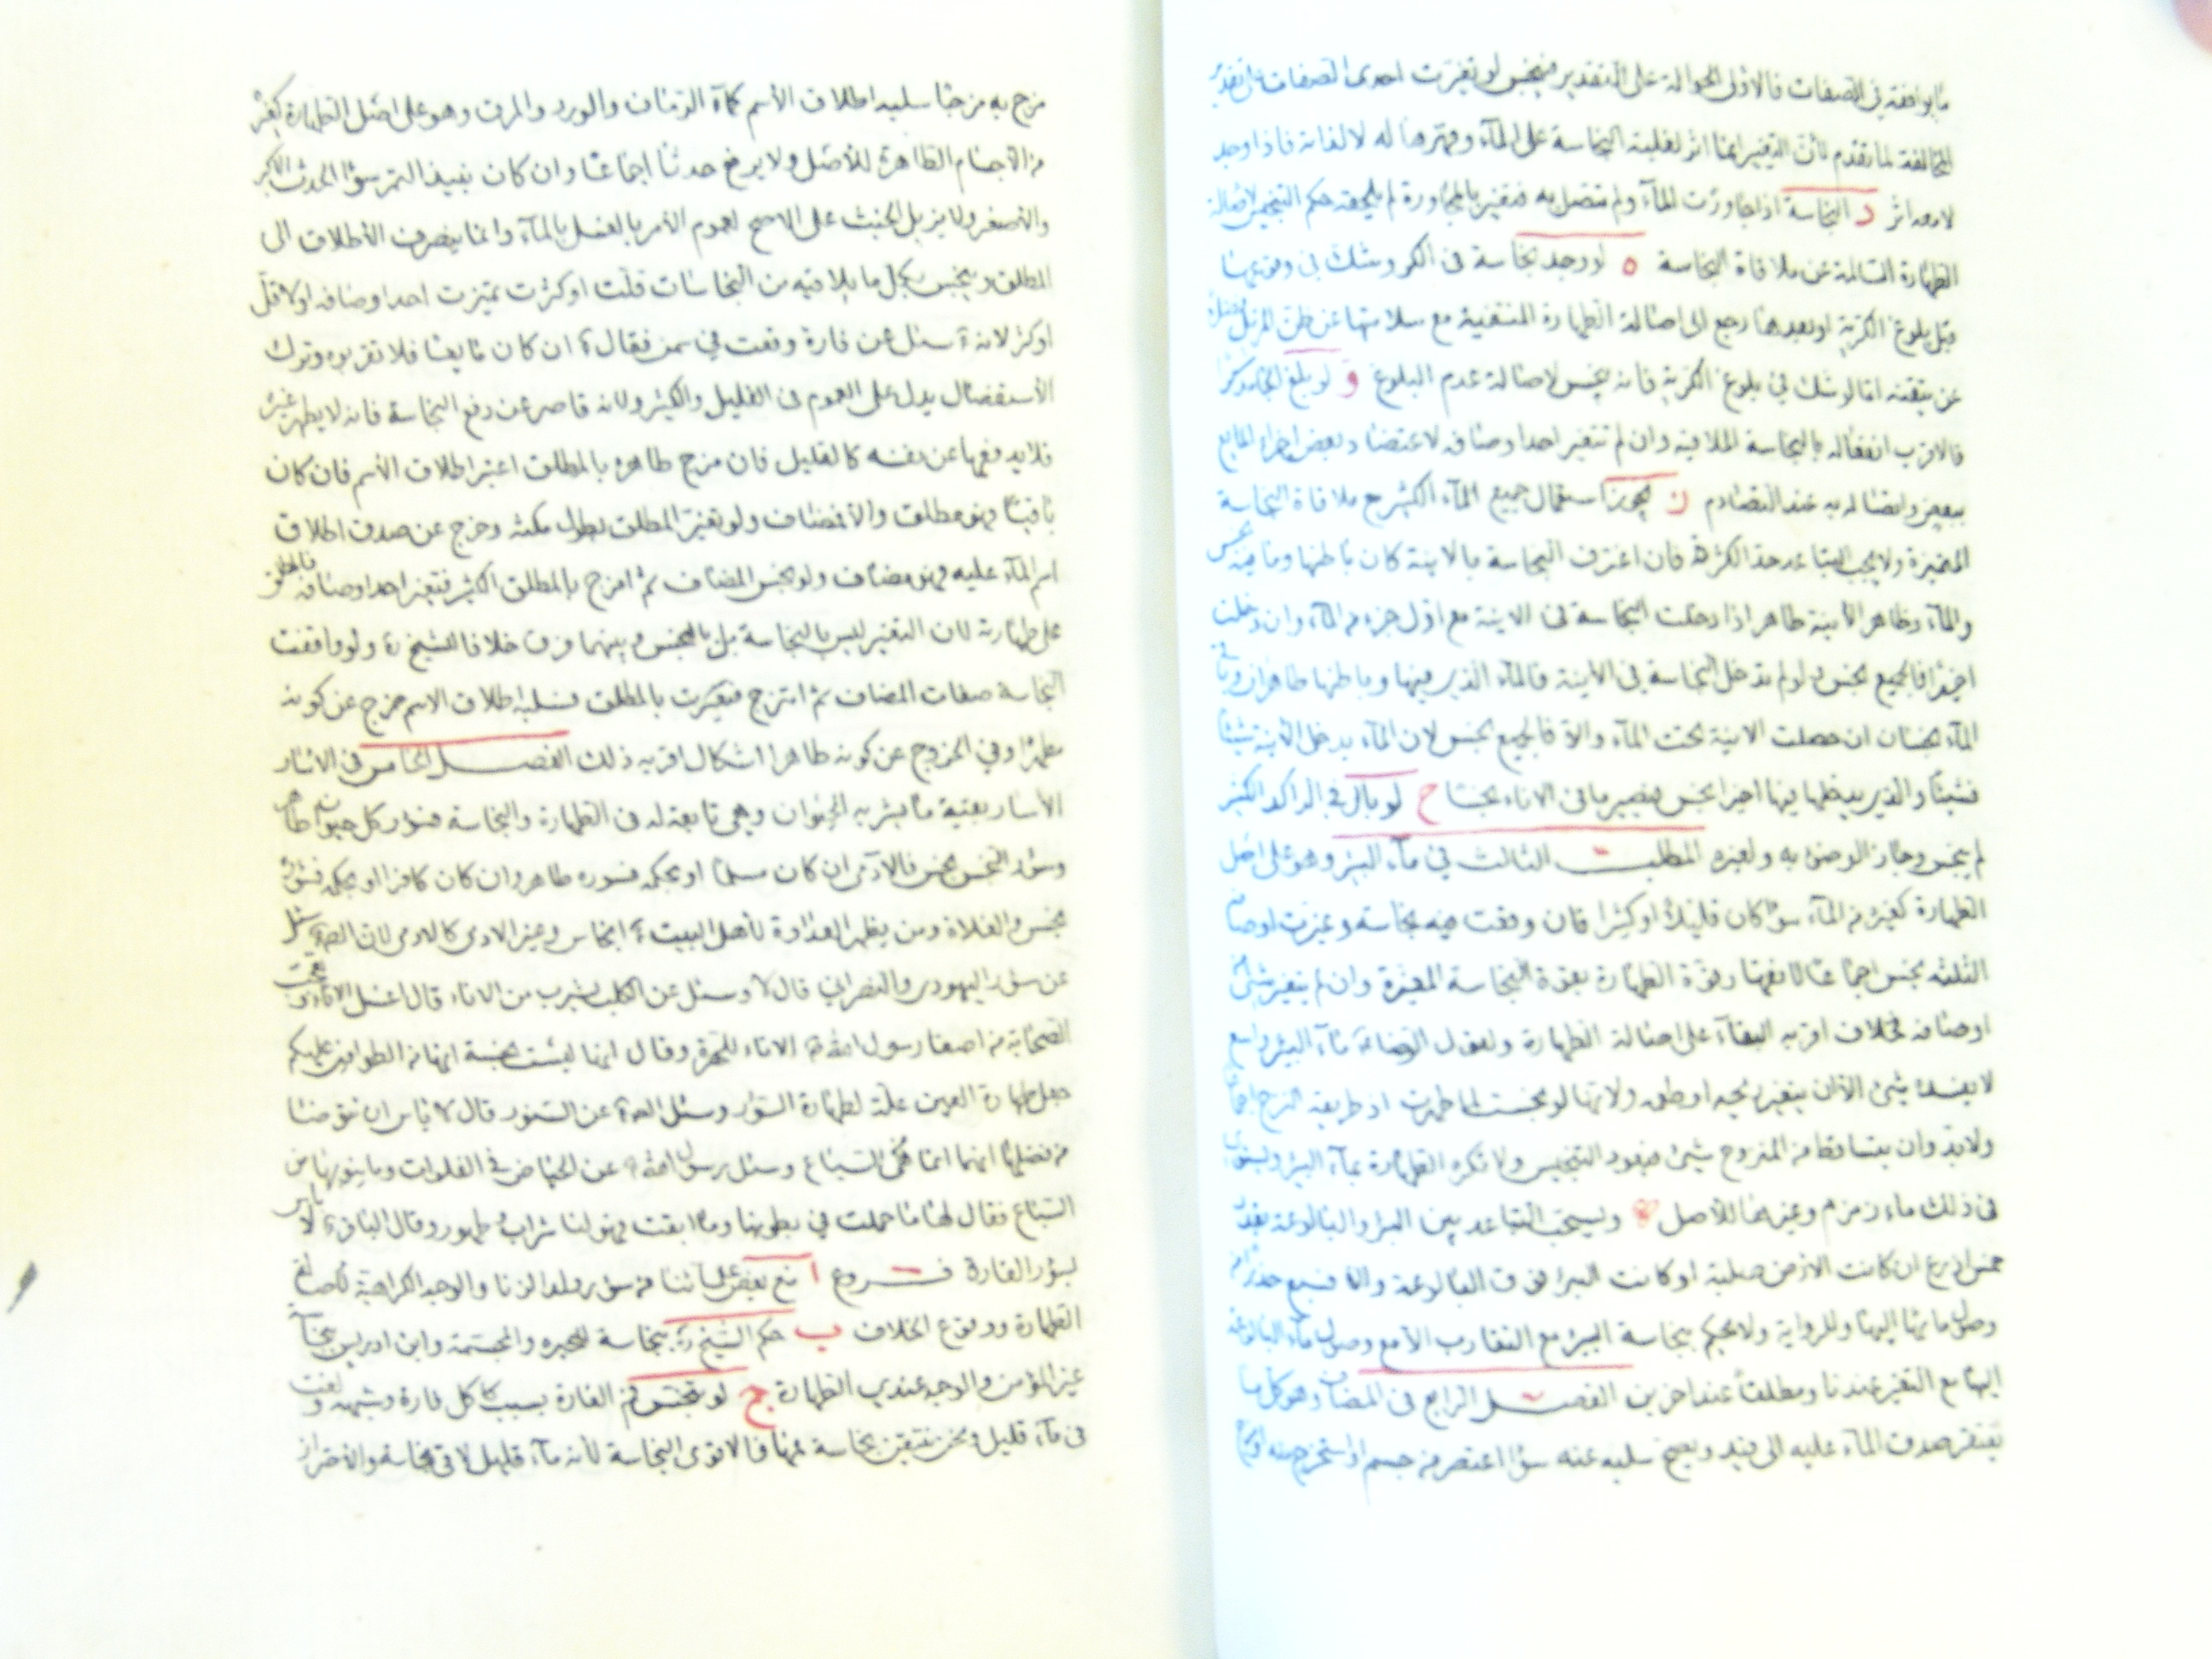 ما يوافقه في الصفات فالاولى الحوالة على التقدير فينجس لو تغيرت احدى الصفات على تقدير
المخالفة لما تقدم لان التغيير انما اثر لغلبة النجاسة على الماء وقهرها له لا لذاته فاذا وجد
لا معه اثر د النجاسة اذا جاورت الماء ولم تتصل به فتغير بالمجاورة لم يلحقه حكم التنجيس لاصالة
الطهارة السالمة عن ملاقاة النجاسة ه لو وجد نجاسة في الكر وشك في وقوعها
قبل بلوغ الكرية او بعدها رجع الى اصالة الطهارة المستفية مع سلامتها عن ظن المزيل فضلا
عن تيقنه اما لو شك في بلوغ الكرية فانه ينجس لاصالة عدم البلوغ و لو بلغ الجامد كرا
فالاقرب انفعاله بالنجاسة الملاقية وان لم تتغير احد اوصافه لاعتضاد بعض اجزاء المايع
ببعض واتصاله به عند التصادم ز يجوز استعمال جميع الماء الكثير مع ملاقاة النجاسة
المتميزة ولا يجب التباعد حد الكثرة فان اغترف النجاسة بالانية كان باطنها وما فيه نجس
والماء وظاهر الانية طاهر اذا دخلت النجاسة في الانية مع اول جزء من الماء وان دخلت
اخيرا فالجميع نجس ولو لم تدخل النجاسة في الانية فالماء الذي فيها وباطنها طاهران وباقي
الماء نجسان ان حصلت الانية تحت الماء والا فالجميع نجس لان الماء يدخل الانية شيئا
فشيئا والذي يدخلها فيها اخيرا نجس فيصير ما في الاناء نجسا ح لو بال في الراكد الكثير
لم ينجس وجاز الوضوء به ولغيره المطلب الثالث في ماء البئر وهو على اصل
الطهارة كغيره من الماء سواء كان قليلا او كثيرا فان وقعت فيه نجاسة وغيرت اوصافه
الثلثه نجس اجماعا لانقهار قوة الطهارة بقوة النجاسة المغيرة وان لم يتغير شئ من
اوصافه فخلاف اقربه البقاء على اصالة الطهارة ولقول الرضا ع ماء البئر واسع
لا يفسده شئ الا ان يتغير ريحه او طعمه ولانها لو نجست لما طهرت اذ طريقه النزح اجماعا
ولا بد وان يتساقط من المنزوح شئ فيعود التنجيس ولا تكره الطهارة بماء البئر ويستوي
في ذلك ماء زمزم وغيرها للاصل ويستحب التباعد بين البئر والبالوعة بقدر
خمس اذرع ان كانت الارض صلبة او كانت البئر فوق البالوعة والا فسبع حذرا من
وصول مائها اليها وللرواية ولا يحكم بنجاسة البئر مع التقارب الا مع وصول ماء البالوعة
اليها مع التغير عندنا ومطلقا عند اخرين الفصل الرابع في المضاف وهو كل ما
يفتقر صدق الماء عليه الى قيد ويصح سلبه عنه سواء اعتصر من جسم او استخرج منه او
مزج به مزجا سلبه اطلاق الاسم كماء الرمان والورد والمرق وهو على اصل الطهارة كغيره
من الاجسام الطاهرة للاصل ولا يرفع حدثا اجماعا وان كان نبيذ التمر سواء الحدث الاكبر
والاصغر ولا يزيل الخبث على الاصح لعموم الامر بالغسل بالماء وانما ينصرف الاطلاق الى
المطلق وينجس بكل ما يلاقيه من النجاسات قلت او كثرت تميزت احد اوصافه او لا قل
او كثر لانه ع سئل عن فارة وقعت في سمن فقال ع ان كان مايعا فلا تقربوه وترك
الاستفصال يدل على العموم في القليل والكثير ولانه قاصر عن دفع النجاسة فانه لا يطهر غيره
فلا يدفعها عن نفسه كالقليل فان مزج طاهره بالمطلق اعتبر اطلاق الاسم فان كان
باقيا فهو مطلق والا فمضاف ولو تغير المطلق لطول مكثه وخرج عن صدق اطلاق
اسم الماء عليه فهو مضاف ولو نجس المضاف ثم امتزج بالمطلق الكثير فتغير احد اوصافه فالمطلق
على طهارته لان التغير ليس بالنجاسة بل بالمتنجس وبينهما فرق خلافا للشيخ ره ولو وافقت
النجاسة صفات المضاف ثم امتزج فتغيرت بالمطلق فسلبه اطلاق الاسم خرج عن كونه
مطهرا وفي الخروج عن كونه طاهرا اشكال اقربه ذلك الفصل الخامس في الاسار
الاسار بقية ما يشربه الحيوان وهي تابعة له في الطهارة والنجاسة فسؤر كل حيوان طاهر
وسؤر النجس نجس فالادمي ان كان مسلما او بحكمه فسوره طاهر وان كان كافرا او بحكمه فسؤره
نجس والغلاة ومن يظهر العداوة لاهل البيت ع انجاس وغير الادمي كالادمي لان الص ع سئل
عن سؤر اليهودي والنصراني قال لا وسئل عن الكلب يشرب من الاناء قال اغسل الاناء وعن بعض
الصحابة من اصغا رسول الله ص الاناء للهرة وقال انها ليست بنجسة انها من الطوافين عليكم
جعل طهارة العين علة لطهارة السؤر وسئل الص ع عن السنور قال لا باس ان تتوضا
من فضلها انما هي من السباع وسئل رسول الله ص عن الحياض في الفلوات وما ينوبها من
السباع فقال لها ما حملت في بطونها وما ابقت فهو لنا شراب وطهور وقال الباقر ع لا باس
بسؤر الفارة فروع ا منع بعض علمائنا من سؤر ولد الزنا والوجه الكراهية لاصالة
الطهارة ووقوع الخلاف ب حكم الشيخ ره بنجاسة المجبره والمجسمة وابن ادريس بنجاسة
غير المؤمن والوجه عندي الطهارة ج لو تنجس فم الفارة بسبب كاكل فارة وشبهه ولغت
في ماء قليل ونحن نتيقن نجاسة فمها فالاقوى النجاسة لانه ماء قليل لاقى نجاسة والاحتراز